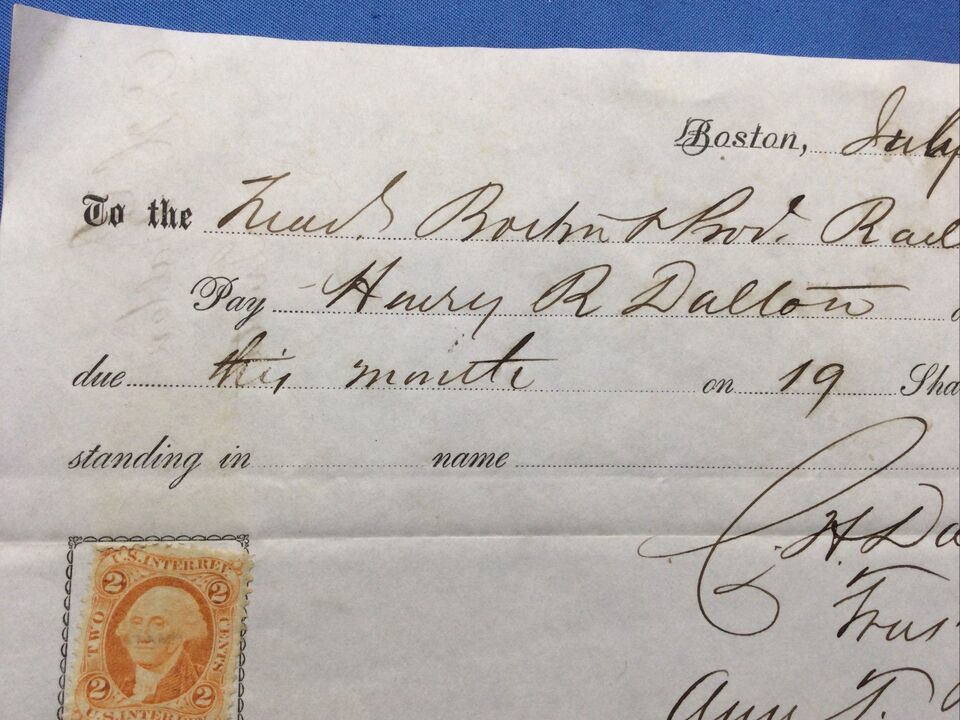 Boston, July
To the Treas. Boston & Prov. Rail
Pay Henry R Dalton
due this month on 19 Sha
standing in name
C. H. Da
Trus
Ann T.
U.S. INTER. REV
2 2
TWO CENTS
2 2
U.S. INTER